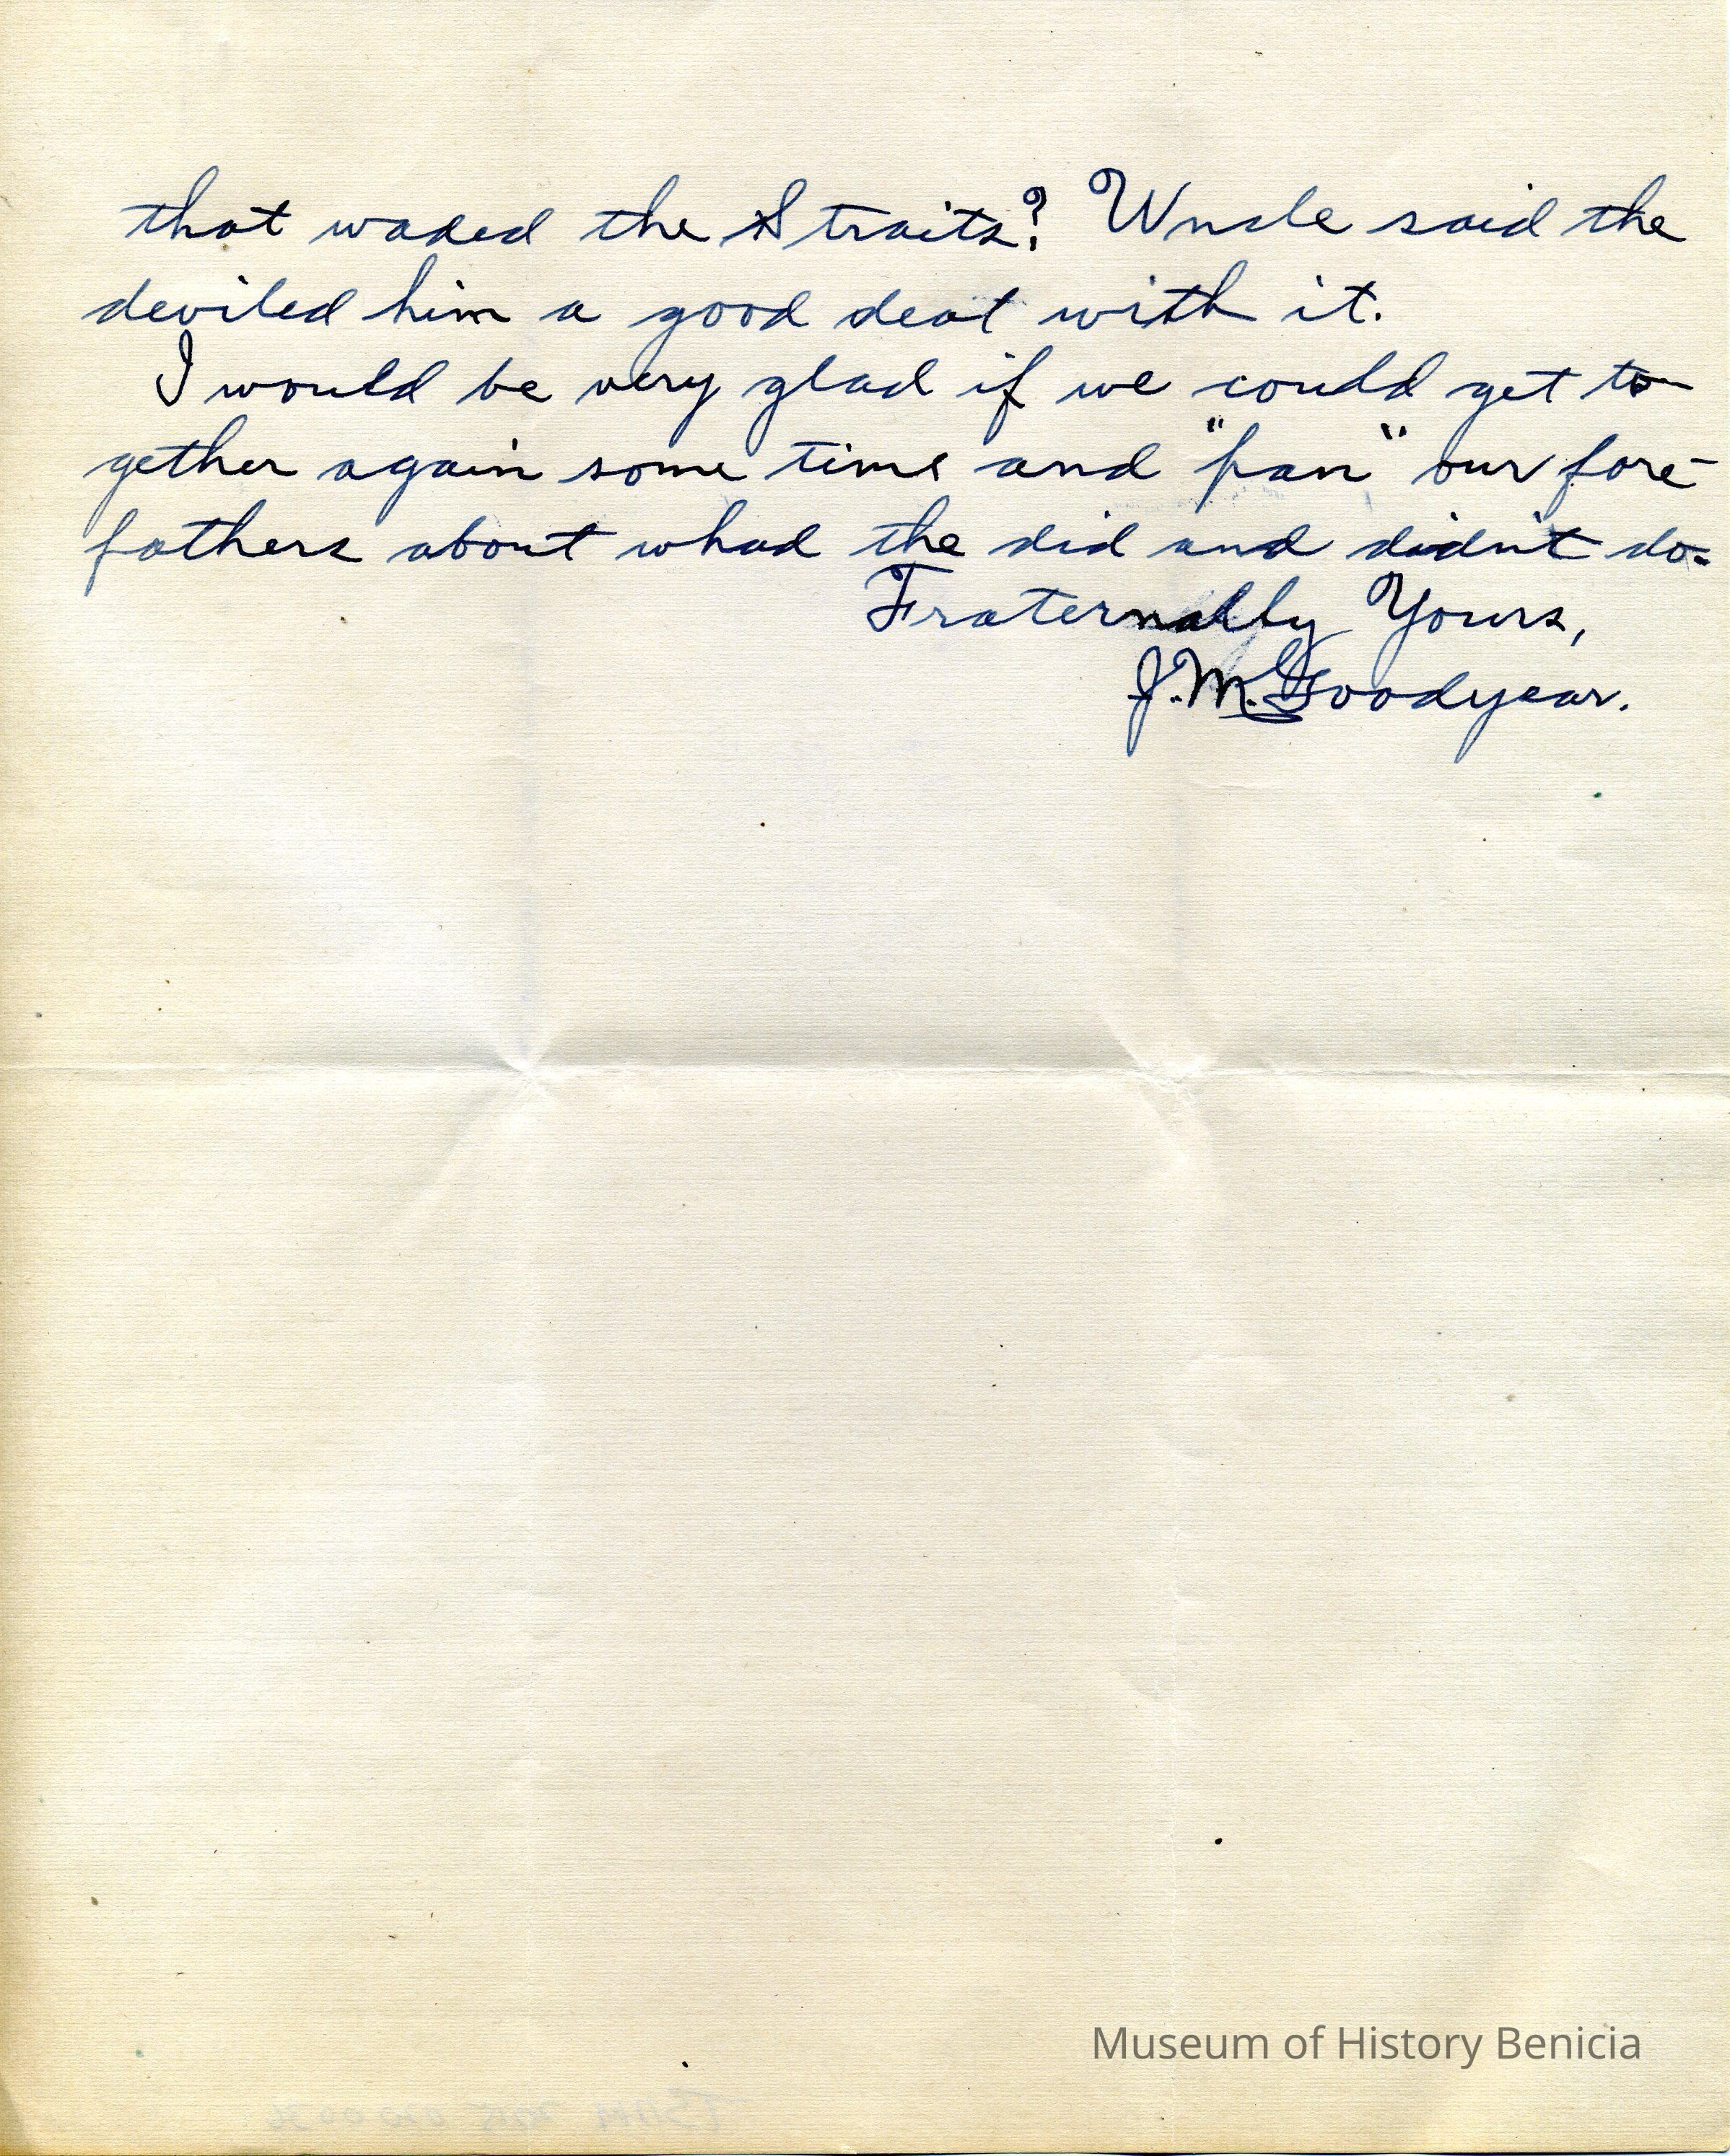 that waded the Straits? Uncle said the
deviled him a good deal with it.
I would be very glad if we could get to-
gether again some time and "pan" our fore-
fathers about whad the did and didn't do.
Fraternally Yours,
J.M. Goodyear.
Museum of History Benicia